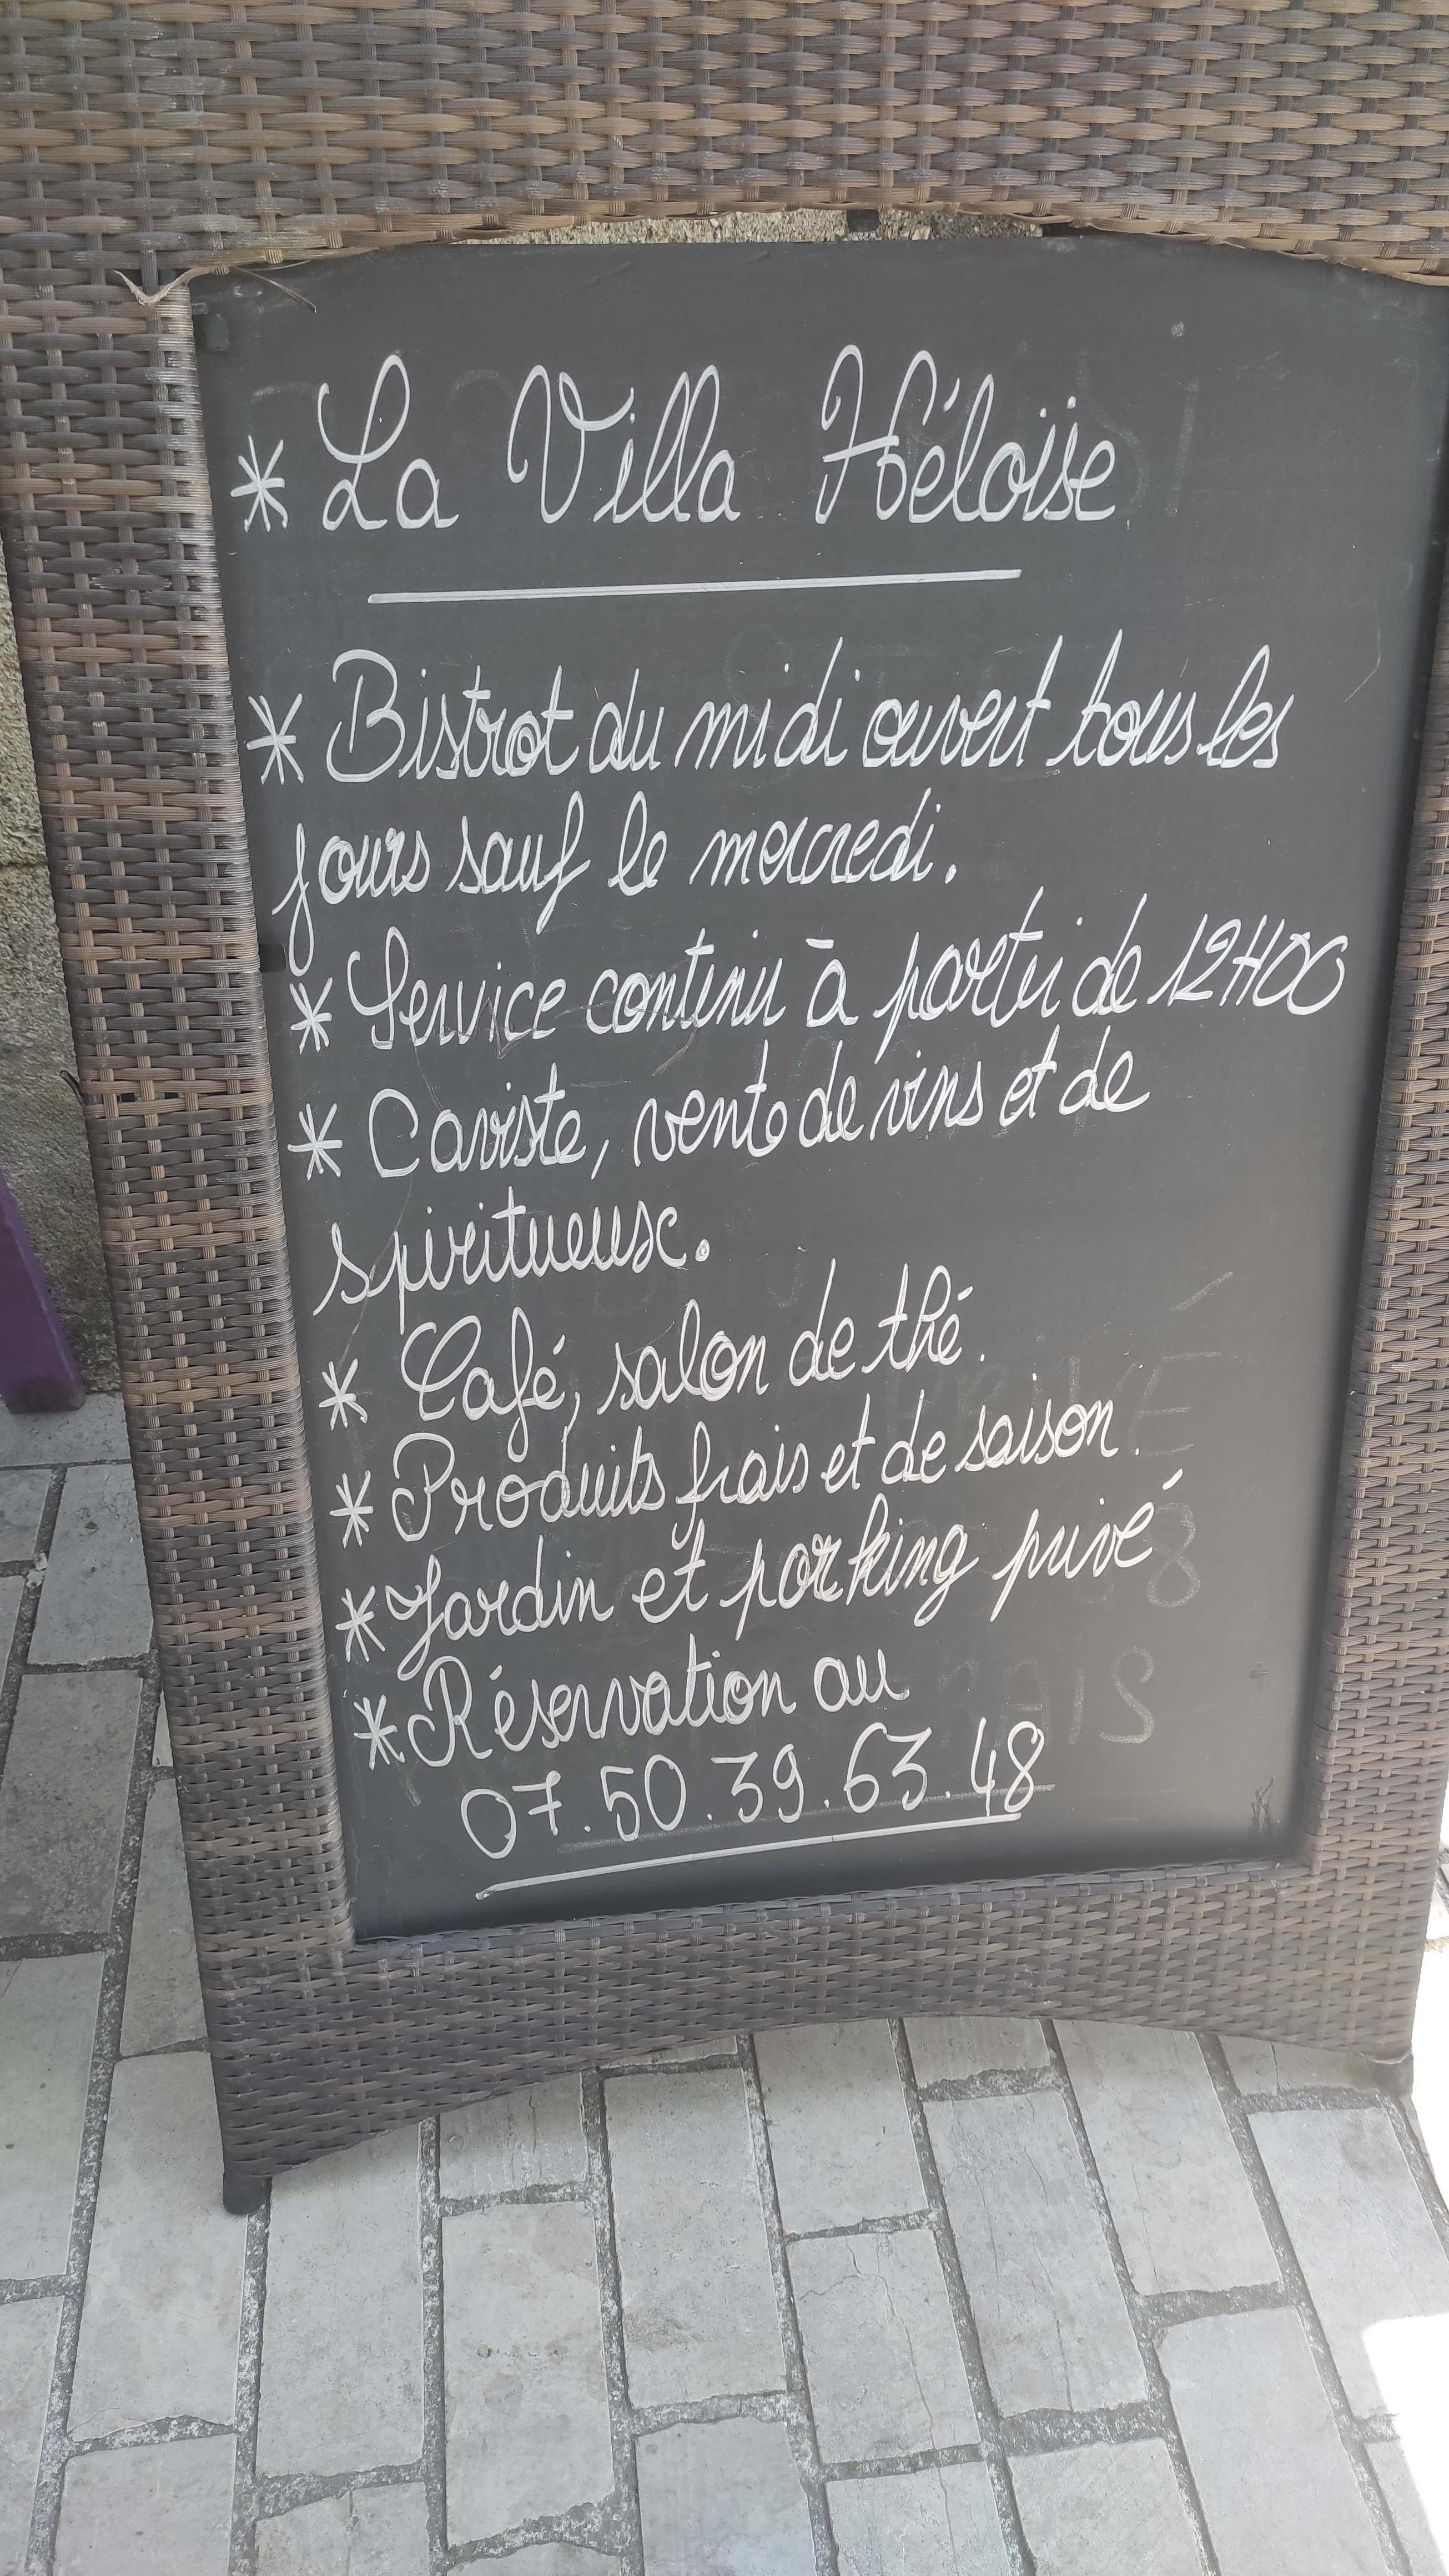 * La Villa Héloïse
* Bistrot du midi ouvert tous les
jours sauf le mercredi.
* Service continu à partir de 12H00
* Caviste, vente de vins et de
spiritueux.
* Café, salon de thé.
* Produits frais et de saison.
* Jardin et parking privé
* Réservation au
07.50.39.63.48